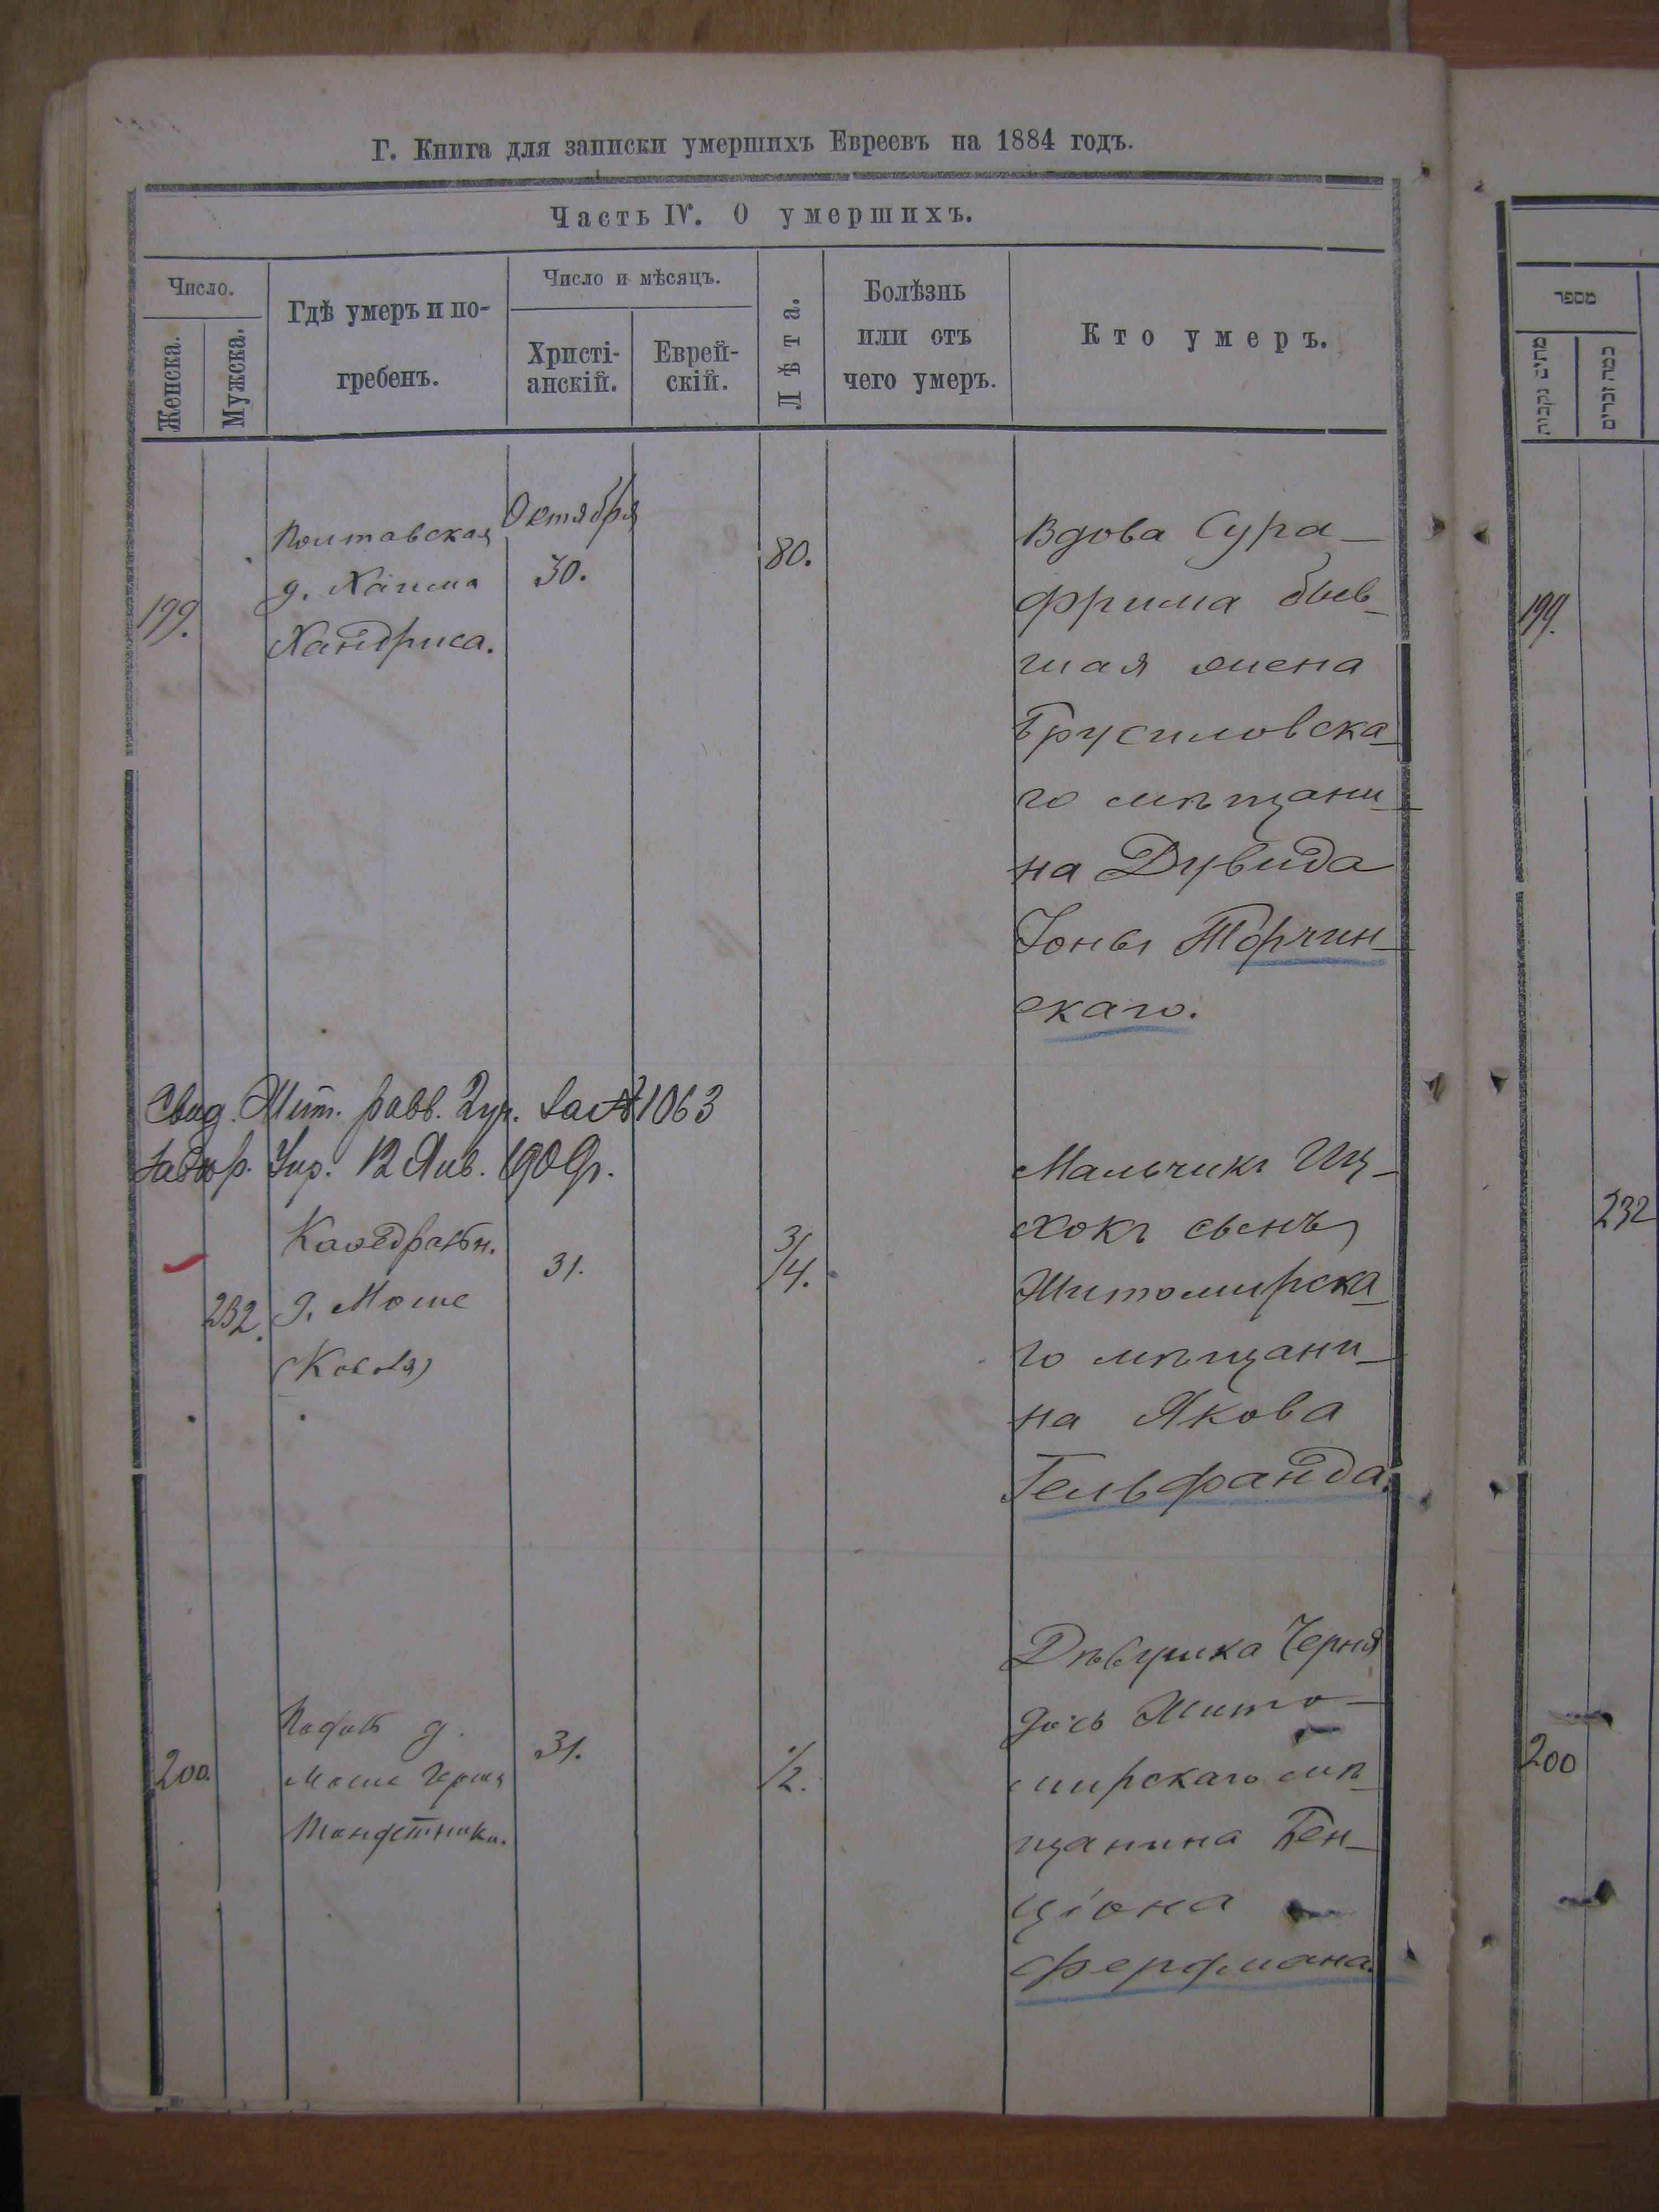 Г. Книга для записки умершихъ Евреевъ на 1884 годъ.
Часть IV. О умершихъ.
Число.
Женска.
Мужска.
Гдѣ умеръ и по-
гребенъ.
Число и мѣсяцъ.
Христі-
анскій.
Еврей-
скій.
Лѣта.
Болѣзнь
или отъ
чего умеръ.
Кто умеръ.
199.
Полтавская
д. Хаима
Хандриса.
Октября
30.
80.
Вдова Сура-
Фрима быв-
шая жена
Брусиловска-
го мѣщани-
на Дувида
Іоны Торчин-
скаго.
Свид. Жит. равв. за № 1063
Упр. 12 Янв. 190
232.
Каѳедральн.
д. Моше
(Коваля)
31.
3/4.
Мальчикъ Иц-
хокъ сынъ
Житомирска-
го мѣщани-
на Якова
Гельфанда.
200.
д.
Моше
31.
1/2.
Дѣвушка Черня
дочь Жито-
мирскаго мѣ-
щанина Бен-
ціона
Фердмана.
מספר
מתים נקבות
כמה זכרים
199.
232
200